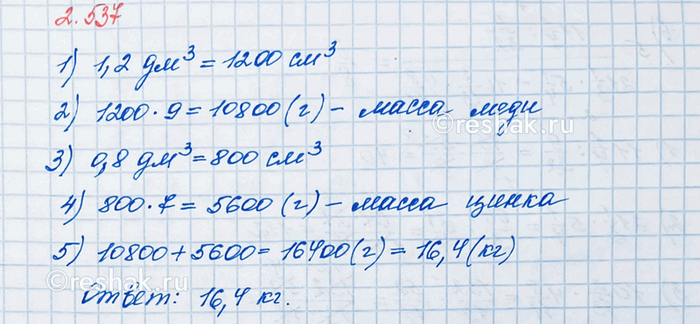 2.537
1) 1,2 дм³ = 1200 см³
2) 1200 · 9 = 10800 (г) – масса меди
reshak.ru
3) 0,8 дм³ = 800 см³
4) 800 · 7 = 5600 (г) – масса цинка
5) 10800 + 5600 = 16400 (г) = 16,4 (кг)
reshak.ru
Ответ: 16,4 кг.